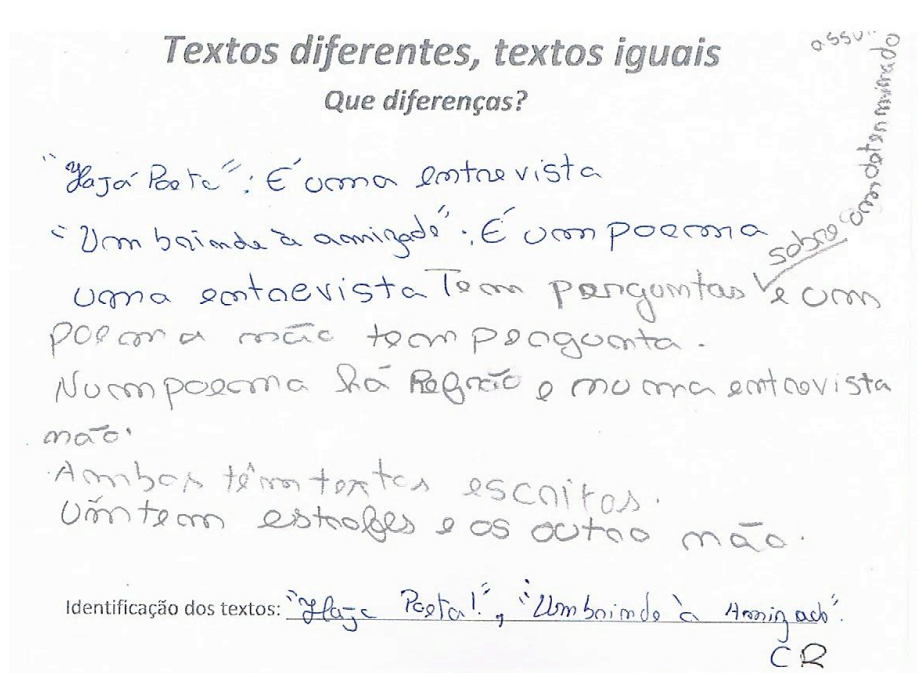 Textos diferentes, textos iguais
Que diferenças?
"Haja Poeta": É uma entrevista
"Um brinde à amizade": É um poema
uma entrevista Tem perguntas sobre um determinado assu.. e um
poema não tem pergunta.
Num poema há Refrão e numa entrevista
não.
Ambos têm textos escritos.
Um tem estrofes e os outro não.
Identificação dos textos: "Haja Poeta!", "Um brinde à Amizade".
CR